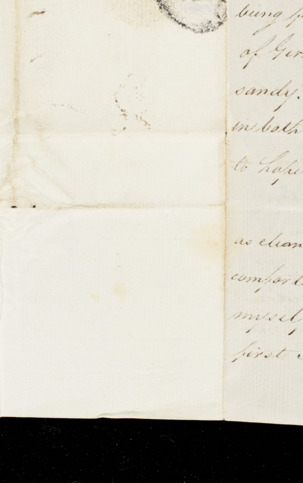 being
of
sandy.
in both
to hope
as clean
comfort
myself
first